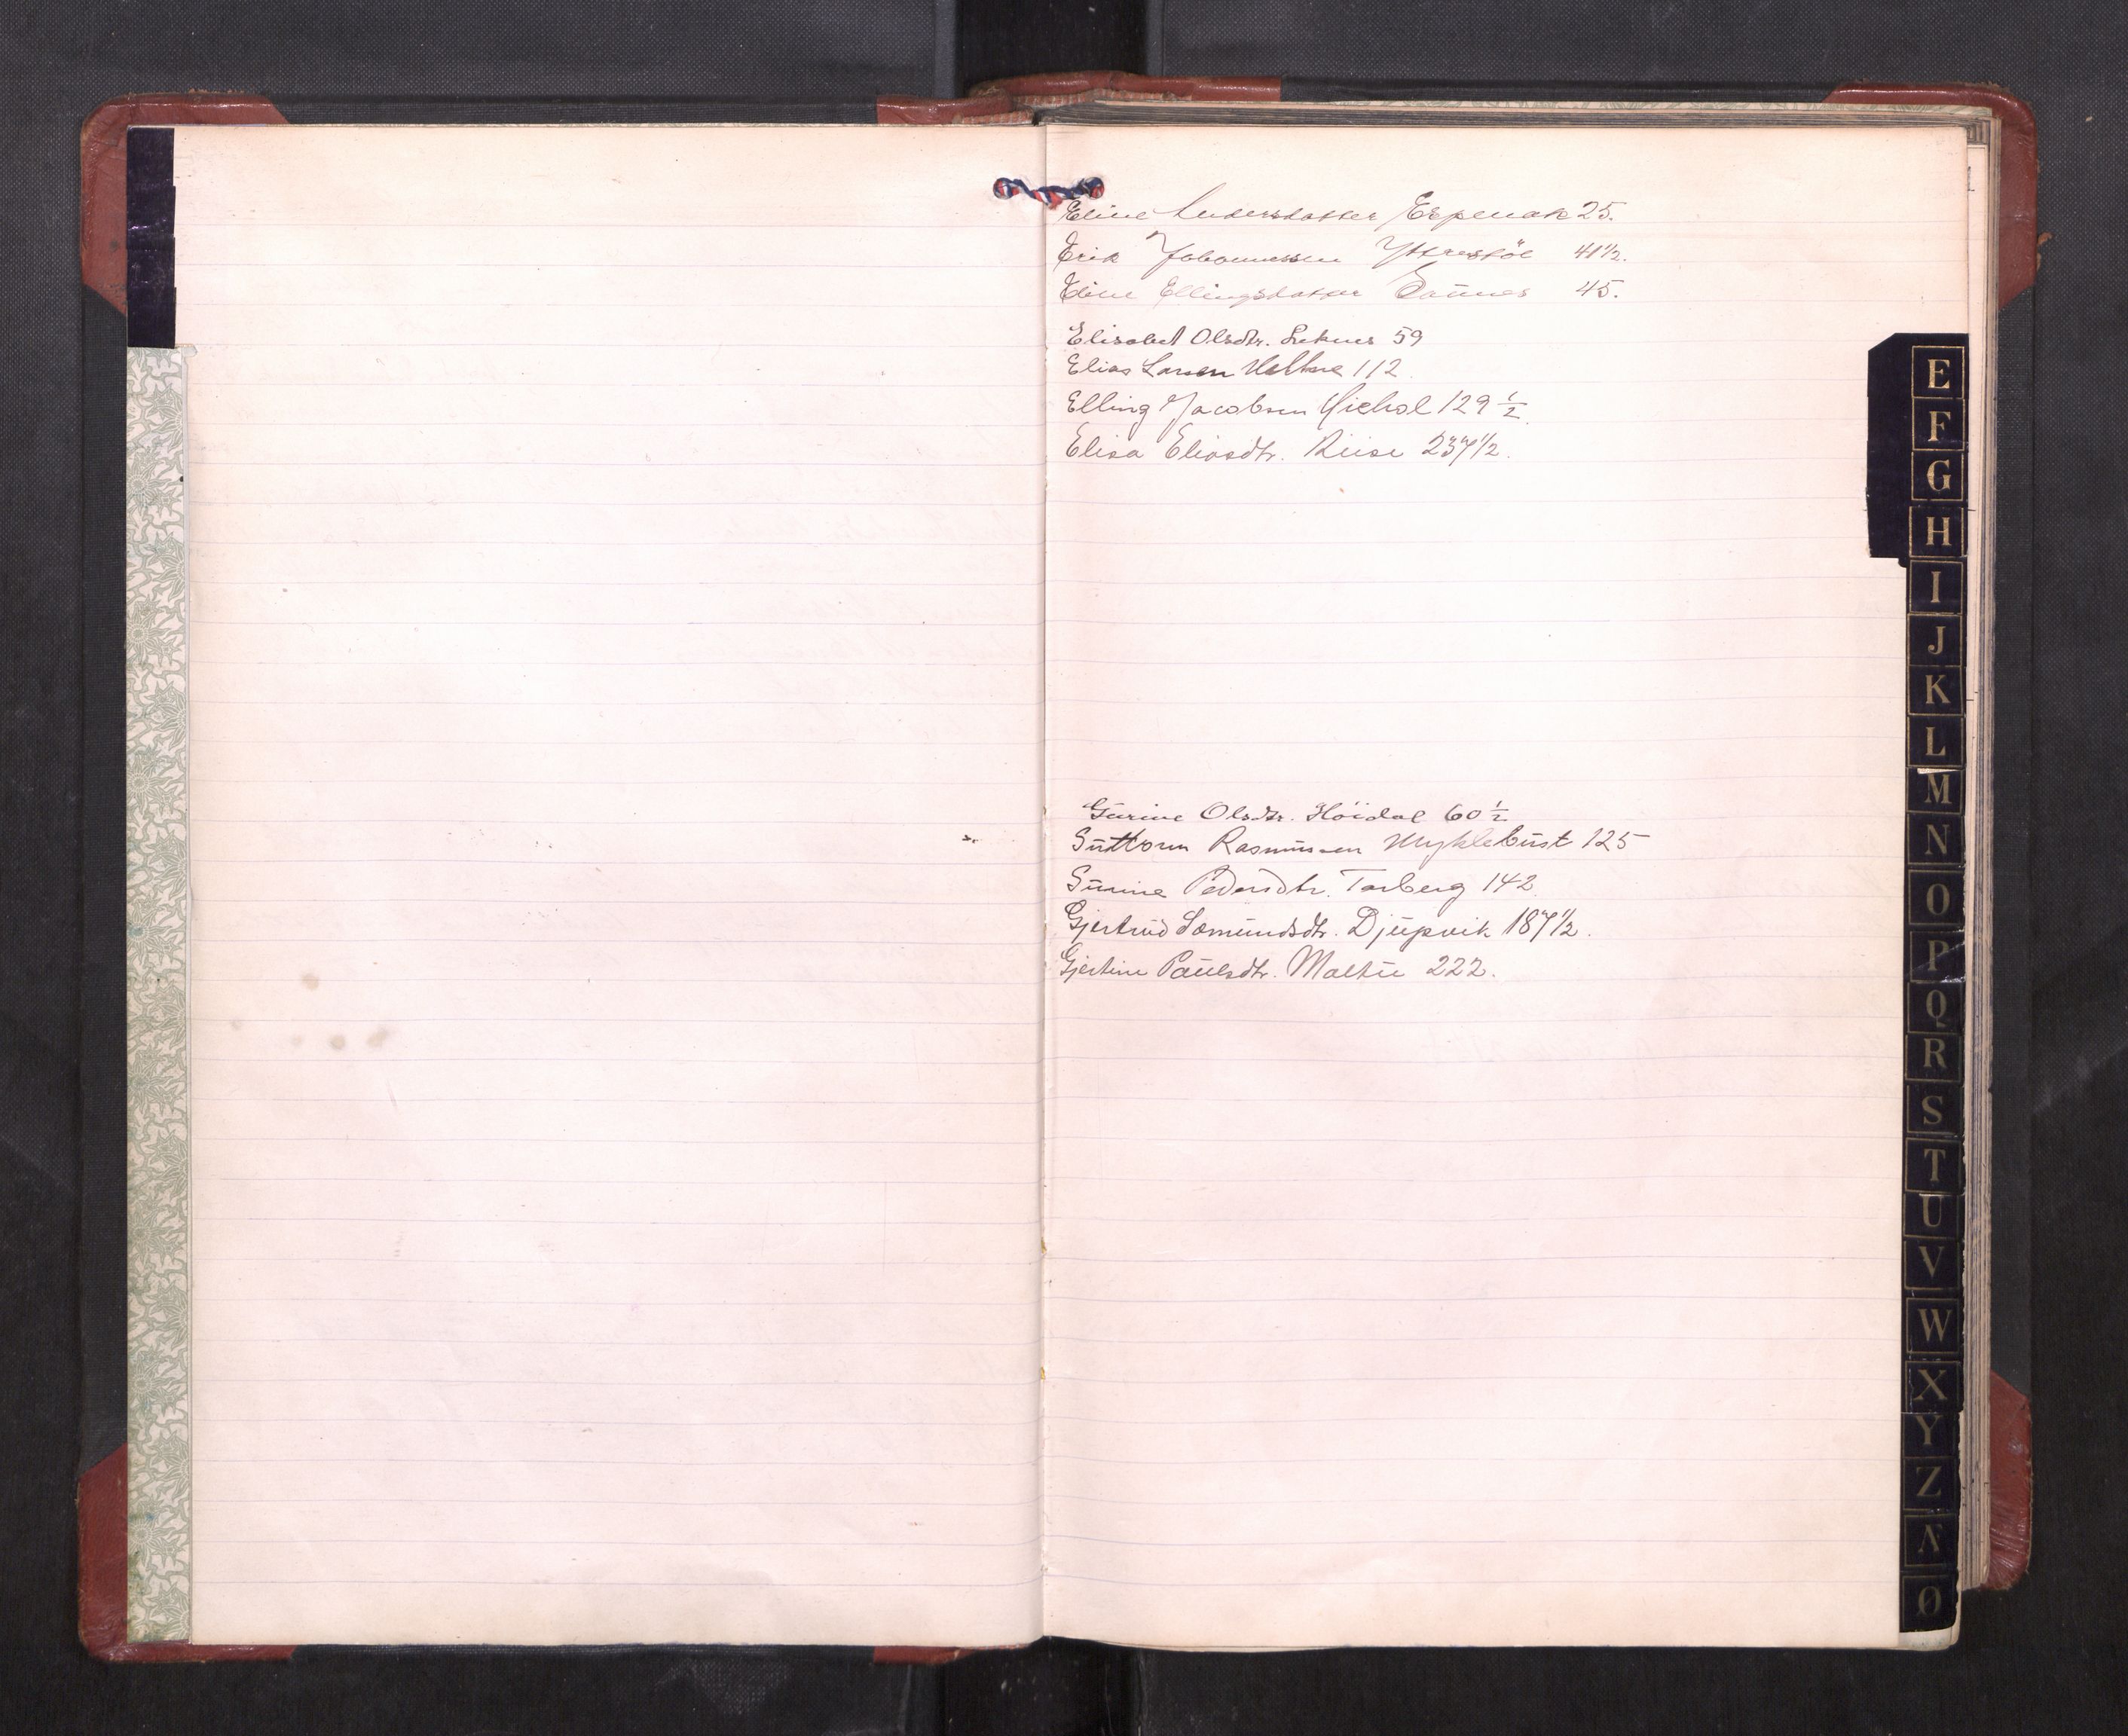 Eline Andersdatter Espenak 25.
Erik Johannessen Yttrestöl 41½.
Eline Ellingsdatter 45.
Elisabet Olsdtr. Leknes 59
Elias Larsen 112
Elling Jacobsen 129 ½
Elisa Eliasdtr. Riise 237½.
Gurine Olsdtr. Höidal 60 ½
Guttorm Rasmussen Myklebust 125
Gurine Pedersdtr. Tarberg 142
Gjertrud Sæmundsdtr. Djupvik 187½.
Gjertine Paulsdtr. 222.
E
F
G
H
I
J
K
L
M
N
O
P
Q
R
S
T
U
V
W
X
Y
Z
Ø